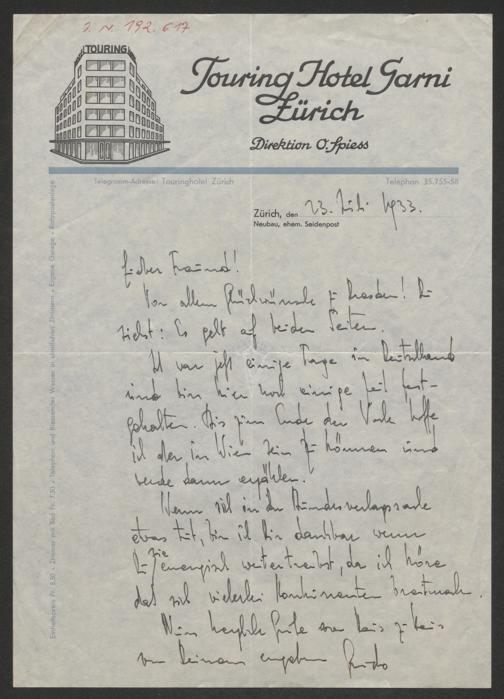 J. N. 192.617
TOURING
Touring Hotel Garni
Zürich
Direktion O. Spiess
Telegramm-Adresse: Touringhotel Zürich Telephon 35.755-58
Zürich, den 23. Juli 1933.
Neubau, ehem. Seidenpost
Lieber Freund!
Vor allem Glückwünsche zu Dresden! Du
siehst: Es geht auf beiden Seiten.
Ich war jetzt einige Tage in Deutschland
und bin hier noch einige Zeit fest-
gehalten. Bis zum Ende der Woche hoffe
ich aber in Wien sein zu können und
werde dann erzählen.
Wenn sich in der Bundesverlagssache
etwas tut, bin ich Dir dankbar wenn
Du sie energisch weitertreibst, da ich höre
daß sich vielerlei Konkurrenten breitmachen.
Viele herzliche Grüße von Haus zu Haus
von Deinem ergebenen Guido
Einheitspreis Fr. 5.50 - Zimmer mit Bad Fr. 7.50 - Telephon und fliessendes Wasser in sämtlichen Zimmern - Eigene Garage -